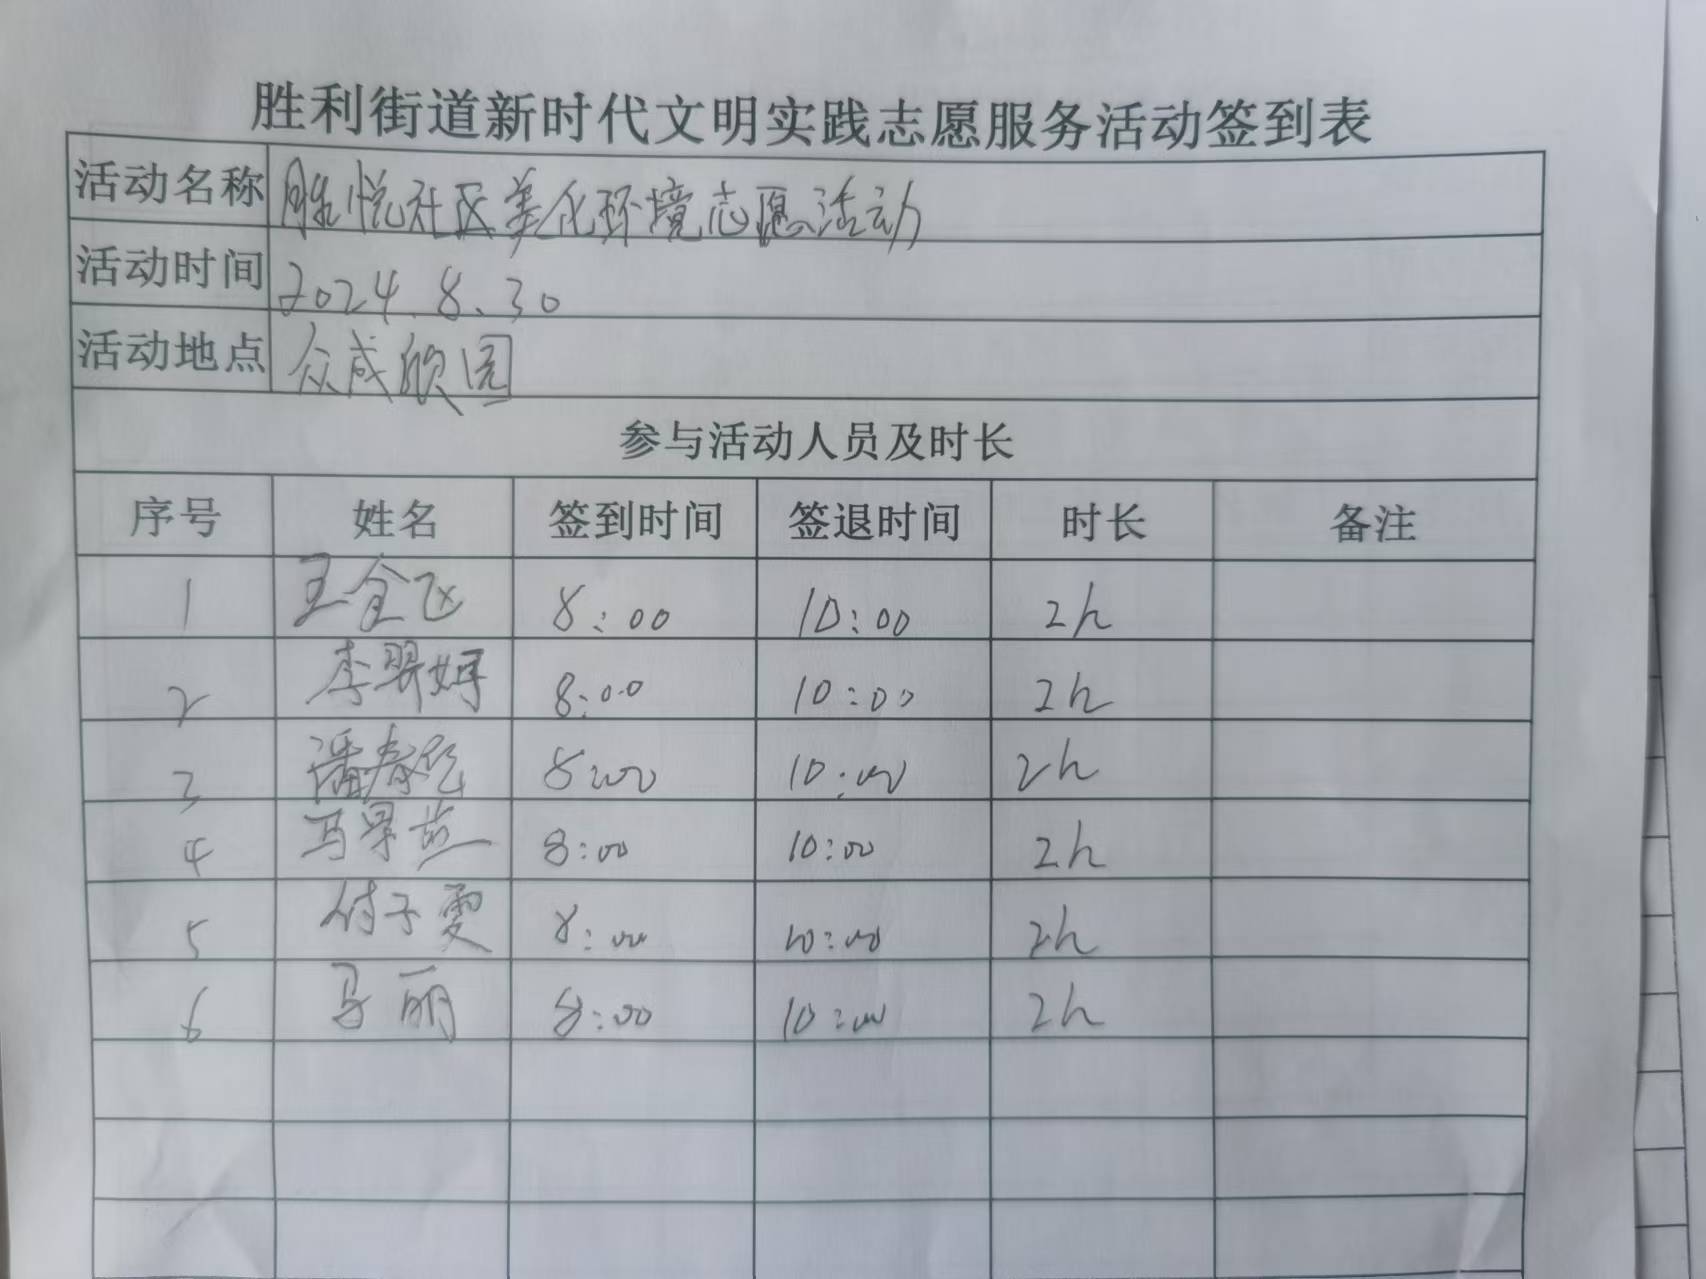 胜利街道新时代文明实践志愿服务活动签到表
活动名称 胜悦社区美化环境志愿活动
活动时间 2024.8.30
活动地点 众成欣园
参与活动人员及时长
序号 姓名 签到时间 签退时间 时长 备注
1 王全飞 8:00 10:00 2h
2 李翠婷 8:00 10:00 2h
3 潘春 8:00 10:00 2h
4 马翠 8:00 10:00 2h
5 付子雯 8:00 10:00 2h
6 马丽 8:00 10:00 2h